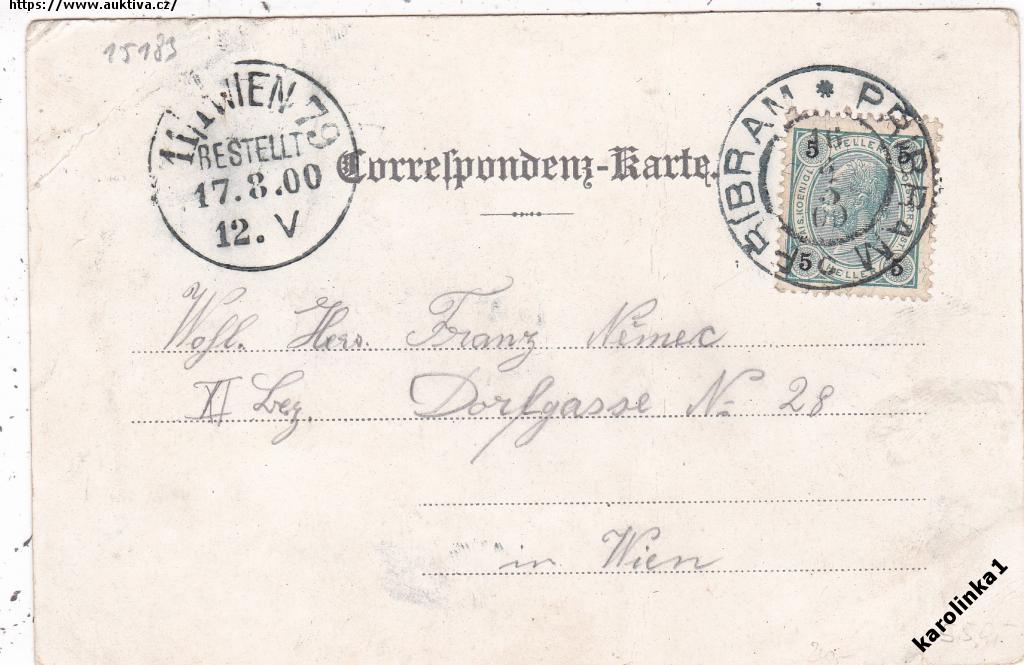 https://www.auktiva.cz/
15183
11/1 WIEN 79
BESTELLT
17.8.00
12. V
Correspondenz-Karte.
PŘIBRAM * PRIBRAM
5 HELLER 5
5 HELLER 5
Wohl. Herr. Franz Němec
XI Bez. Dorfgasse No 28
in Wien
karolinka1